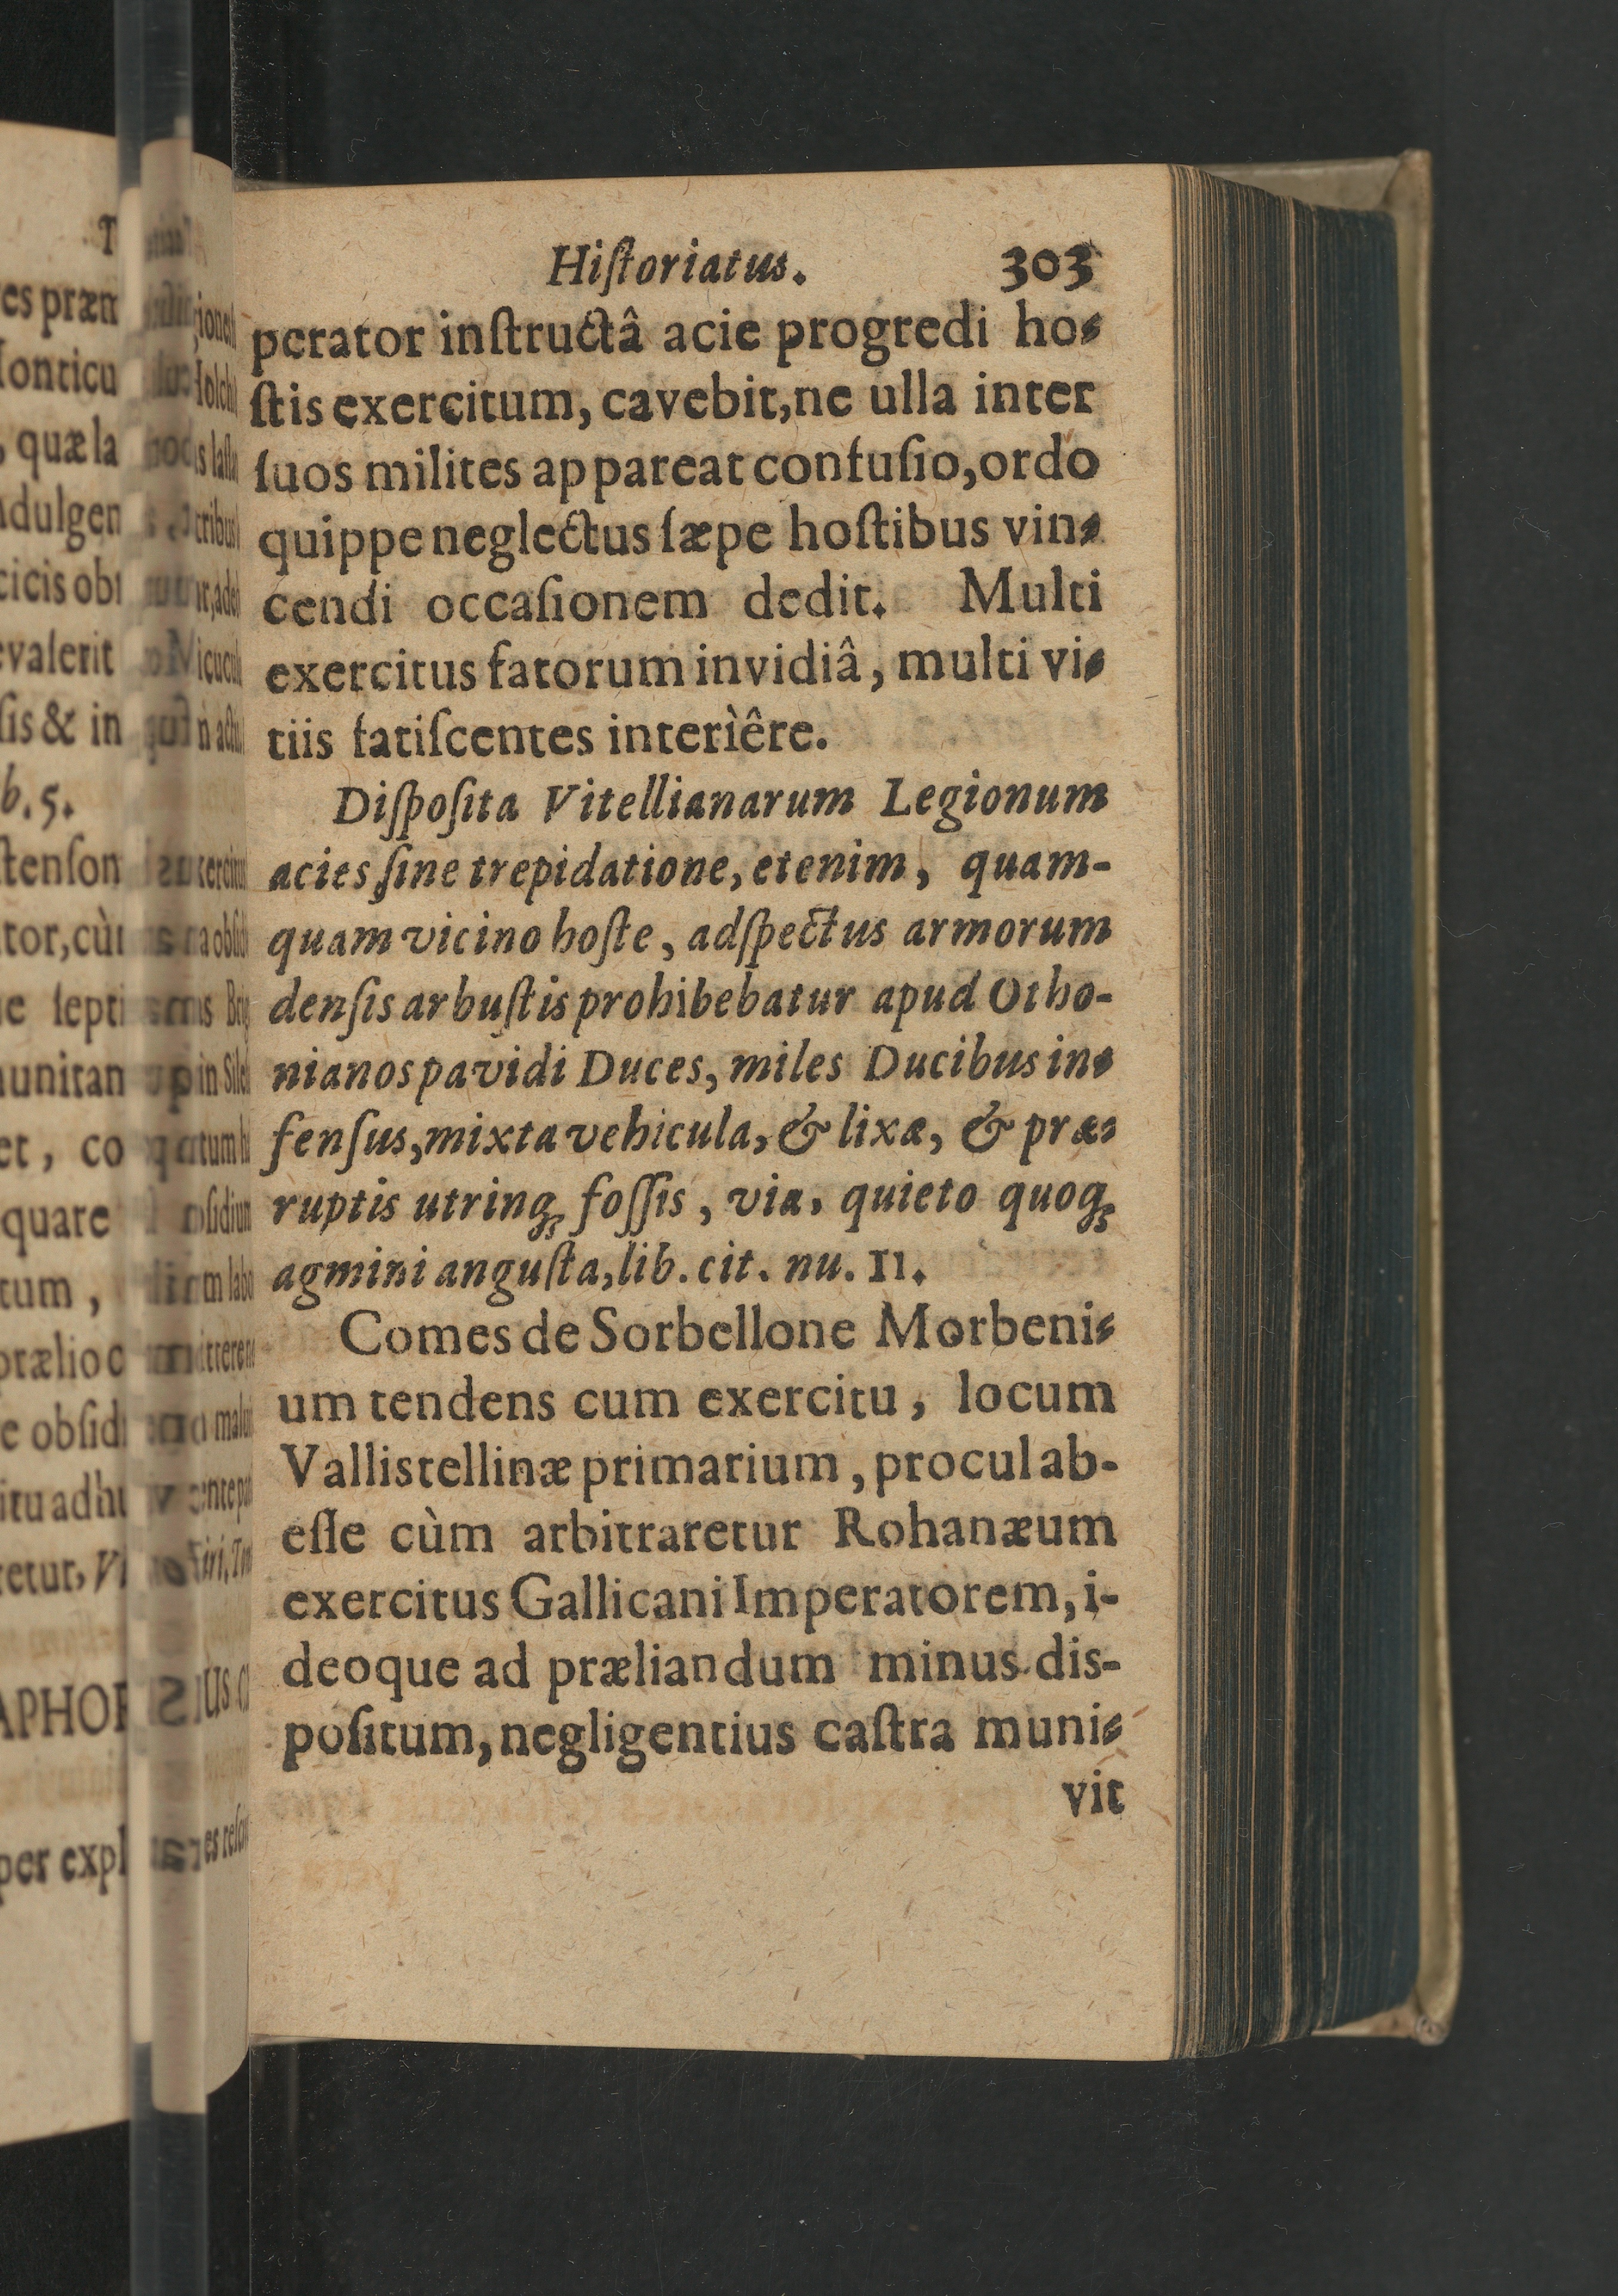 Hiſtoriatus. 303
perator inſtructâ acie progredi ho-
ſtis exercitum, cavebit, ne ulla inter
ſuos milites appareat confuſio, ordo
quippe neglectus ſæpe hoſtibus vin-
cendi occaſionem dedit. Multi
exercitus fatorum invidiâ, multi vi-
tiis fatiſcentes interìêre.
Diſpoſita Vitellianarum Legionum
acies ſine trepidatione, etenim, quam-
quam vicino hoſte, adſpectus armorum
denſis arbuſtis prohibebatur apud Otho-
nianos pavidi Duces, miles Ducibus in-
fenſus, mixta vehicula, & lixæ, & præ-
ruptis utrinq; foſſis, via, quieto quoq;
agmini anguſta, lib. cit. nu. II.
Comes de Sorbellone Morbeni-
um tendens cum exercitu, locum
Vallistellinæ primarium, procul ab-
eſſe cùm arbitraretur Rohanæum
exercitus Gallicani Imperatorem, i-
deoque ad præliandum minus dis-
poſitum, negligentius caſtra muni-
vit